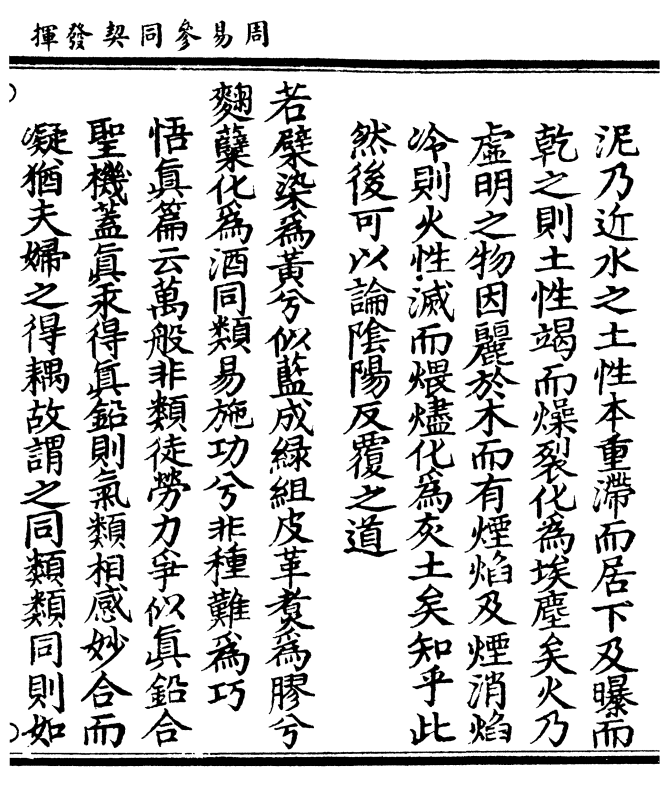 周易參同契發揮
泥乃近水之土性本重滯而居下及曝而
乾之則土性竭而燥裂化為埃塵矣火乃
虛明之物因麗於木而有煙焰及煙消焰
冷則火性滅而煨燼化為灰土矣知乎此
然後可以論陰陽反覆之道
若檗染為黃兮似藍成綠組皮革煮為膠兮
麴糵化為酒同類易施功兮非種難為巧
悟眞篇云萬般非類徒勞力爭似眞鉛合
聖機蓋眞汞得眞鉛則氣類相感妙合而
凝猶夫婦之得耦故謂之同類類同則如